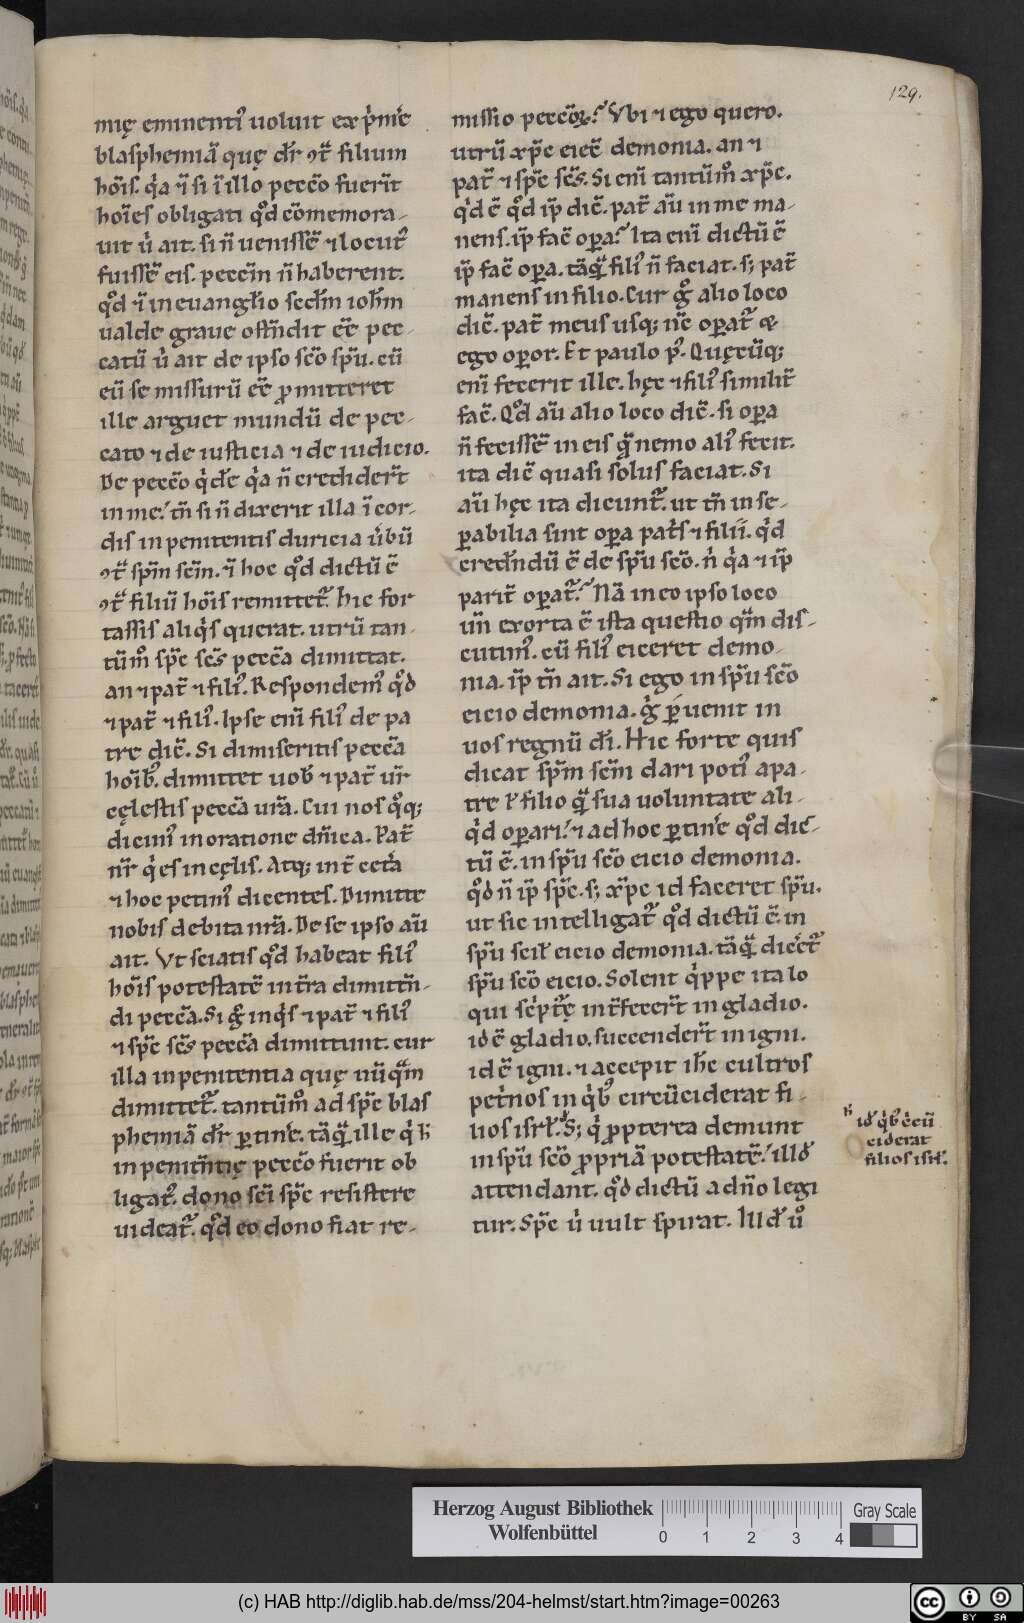 129.
mię eminenti᾽ uoluit exp̍im̄e
blasphemiā quę dr̄ ꝯt̄ filium
hōis. q̍a ī si ī illo peccō fuer̄t
hoīes obligati qͦd cōmemora-
uit u̍ ait. si n̄ uenissē ⁊ locut᾽
fuissē eis. peccīn n̄ haberent.
qͦd ī in euangl̄io secd̄m ioh̄m
ualde graue ostn̄dit eē pec-
catū u̍ ait de ipso scō sp̄u. cū
eū se missurū eē ꝓmitteret
ille arguet mundū de pec-
cato ⁊ de iusticia ⁊ de iudicio.
De peccō q̍de q̍a n̄ credider̄t
in me. tn̄ si n̄ dixerit illa ī cor-
dis inpenitentis duricia u̍bū
ꝯt̄ sp̄m scm̄. ī hoc qͦd dictū ē
ꝯt̄ filiū hōis remittet᾽. Hic for
tassis aliq̍s querat. utrū tan-
tūmͦ sp̄c sc̄s pecc̄a dimittat.
an ⁊ pat̄ ⁊ fili᾽. Respondem᾽ qͦd
⁊ pat̄ ⁊ fili᾽. Ipse eni᾽ fili᾽ de pa
tre dic̄. Si dimiseritis pecc̄a
hoīb᾽. dimittet uob̄ ⁊ pat̄ ur̄
cęlestis pecc̄a ur̄a. Cui nos qͦq;
dicim᾽ in oratione dn̄ica. Pat̄
nr̄ q̍ es in cęlis. Atq; int̄ cet̄a
⁊ hoc petim᾽ dicentes. Dimitte
nobis debita nr̄a. De se ipso aū
ait. Vt sciatis qͦd habeat fili᾽
hōis potestatē in t̄ra dimittn̄-
di pecc̄a. Si gͦ inq̍s ⁊ pat̄ ⁊ fili᾽
⁊ sp̄c sc̄s pecc̄a dimittunt. cur
illa inpenitentia quę nūq̄m
dimittet᾽. tantūmͦ ad sp̄c blas
phemiā dr̄ ꝑtin̄e. tāq̄ ille q̍ h̄
inpenitn̄tię peccō fuerit ob
ligat᾽. dono sc̄i sp̄c resistere
uideat᾽. qͦd eo dono fiat re-
missio peccōꝝ? Vbi ⁊ ego quero.
utrū xp̄c eicē demonia. an ⁊
pat̄ ⁊ sp̄c sc̄s. Si eni᾽ tantūmͦ xp̄c.
q̍d ē qͦd ip̄ dic̄. pat̄ aū in me ma-
nens. ip̄ fac̄ oꝑa? Ita eni᾽ dictū ē
ip̄ fac̄ oꝑa. tāq̄ fili᾽ n̄ faciat. s; pat̄
manens in filio. Cur gͦ alio loco
dic̄. pat̄ meus usq; nc̄ oꝑat᾽ &
ego oꝑor. Et paulo p᾽. Quęcūq;
eni᾽ fecerit ille. hęc ⁊ fili᾽ similit̄
fac̄. Qͦd aū alio loco dic̄. si oꝑa
n̄ fecissē in eis q̄ nemo ali᾽ fecit.
ita dic̄ quasi solus faciat. Si
aū hęc ita dicunt᾽. ut tn̄ inse-
ꝑabilia sint oꝑa pat̄s ⁊ filii. q̍d
credn̄dū ē de sp̄u scō. n̍ q̍a ⁊ ip̄
parit̄ oꝑat᾽? Nā in eo ipso loco
un̄ exorta ē ista questio q̄m dis-
cutim᾽. cū fili᾽ eiceret demo-
nia. ip̄ tn̄ ait. Si ego in sp̄u scō
eicio demonia. g̍ ꝑuenit in
uos regnū dī. Hic forte quis
dicat sp̄m scm̄ dari poti᾽ a pa-
tre ł filio q̄ sua uoluntate ali-
q̍d oꝑari. ⁊ ad hoc ꝑtin̄e qͦd dic-
tū ē. in sp̄u scō eicio demonia.
qͦd n̄ ip̄ sp̄c. s; xp̄c id faceret sp̄u.
ut sic intelligat᾽ qͦd dictū ē. in
sp̄u scił eicio demonia. tāq̄ dicēt᾽
sp̄u scō eicio. Solent q̍ppe ita lo
qui sc̍pt᾽ę int̄fecer̄t in gladio.
id ē gladio. succender̄t in igni.
id ē igni. ⁊ accepit ih̄c cultros
pet̍nos in q̍b᾽ circūciderat fi-
lios isrł. S; q̍ ꝓpterea demunt
in sp̄u scō ꝓpriā potestatē. illd̄
attendant. qͦd dictū a dn̄o legi
tur. Sp̄c u̍ uult spirat. Illd̄ uͦ
h̄ id̄ q̍b᾽ c̍cū
ciderat
filios isrł.
Herzog August Bibliothek
Wolfenbüttel
0 1 2 3 4
Gray Scale
(c) HAB http://diglib.hab.de/mss/204-helmst/start.htm?image=00263
cc BY SA